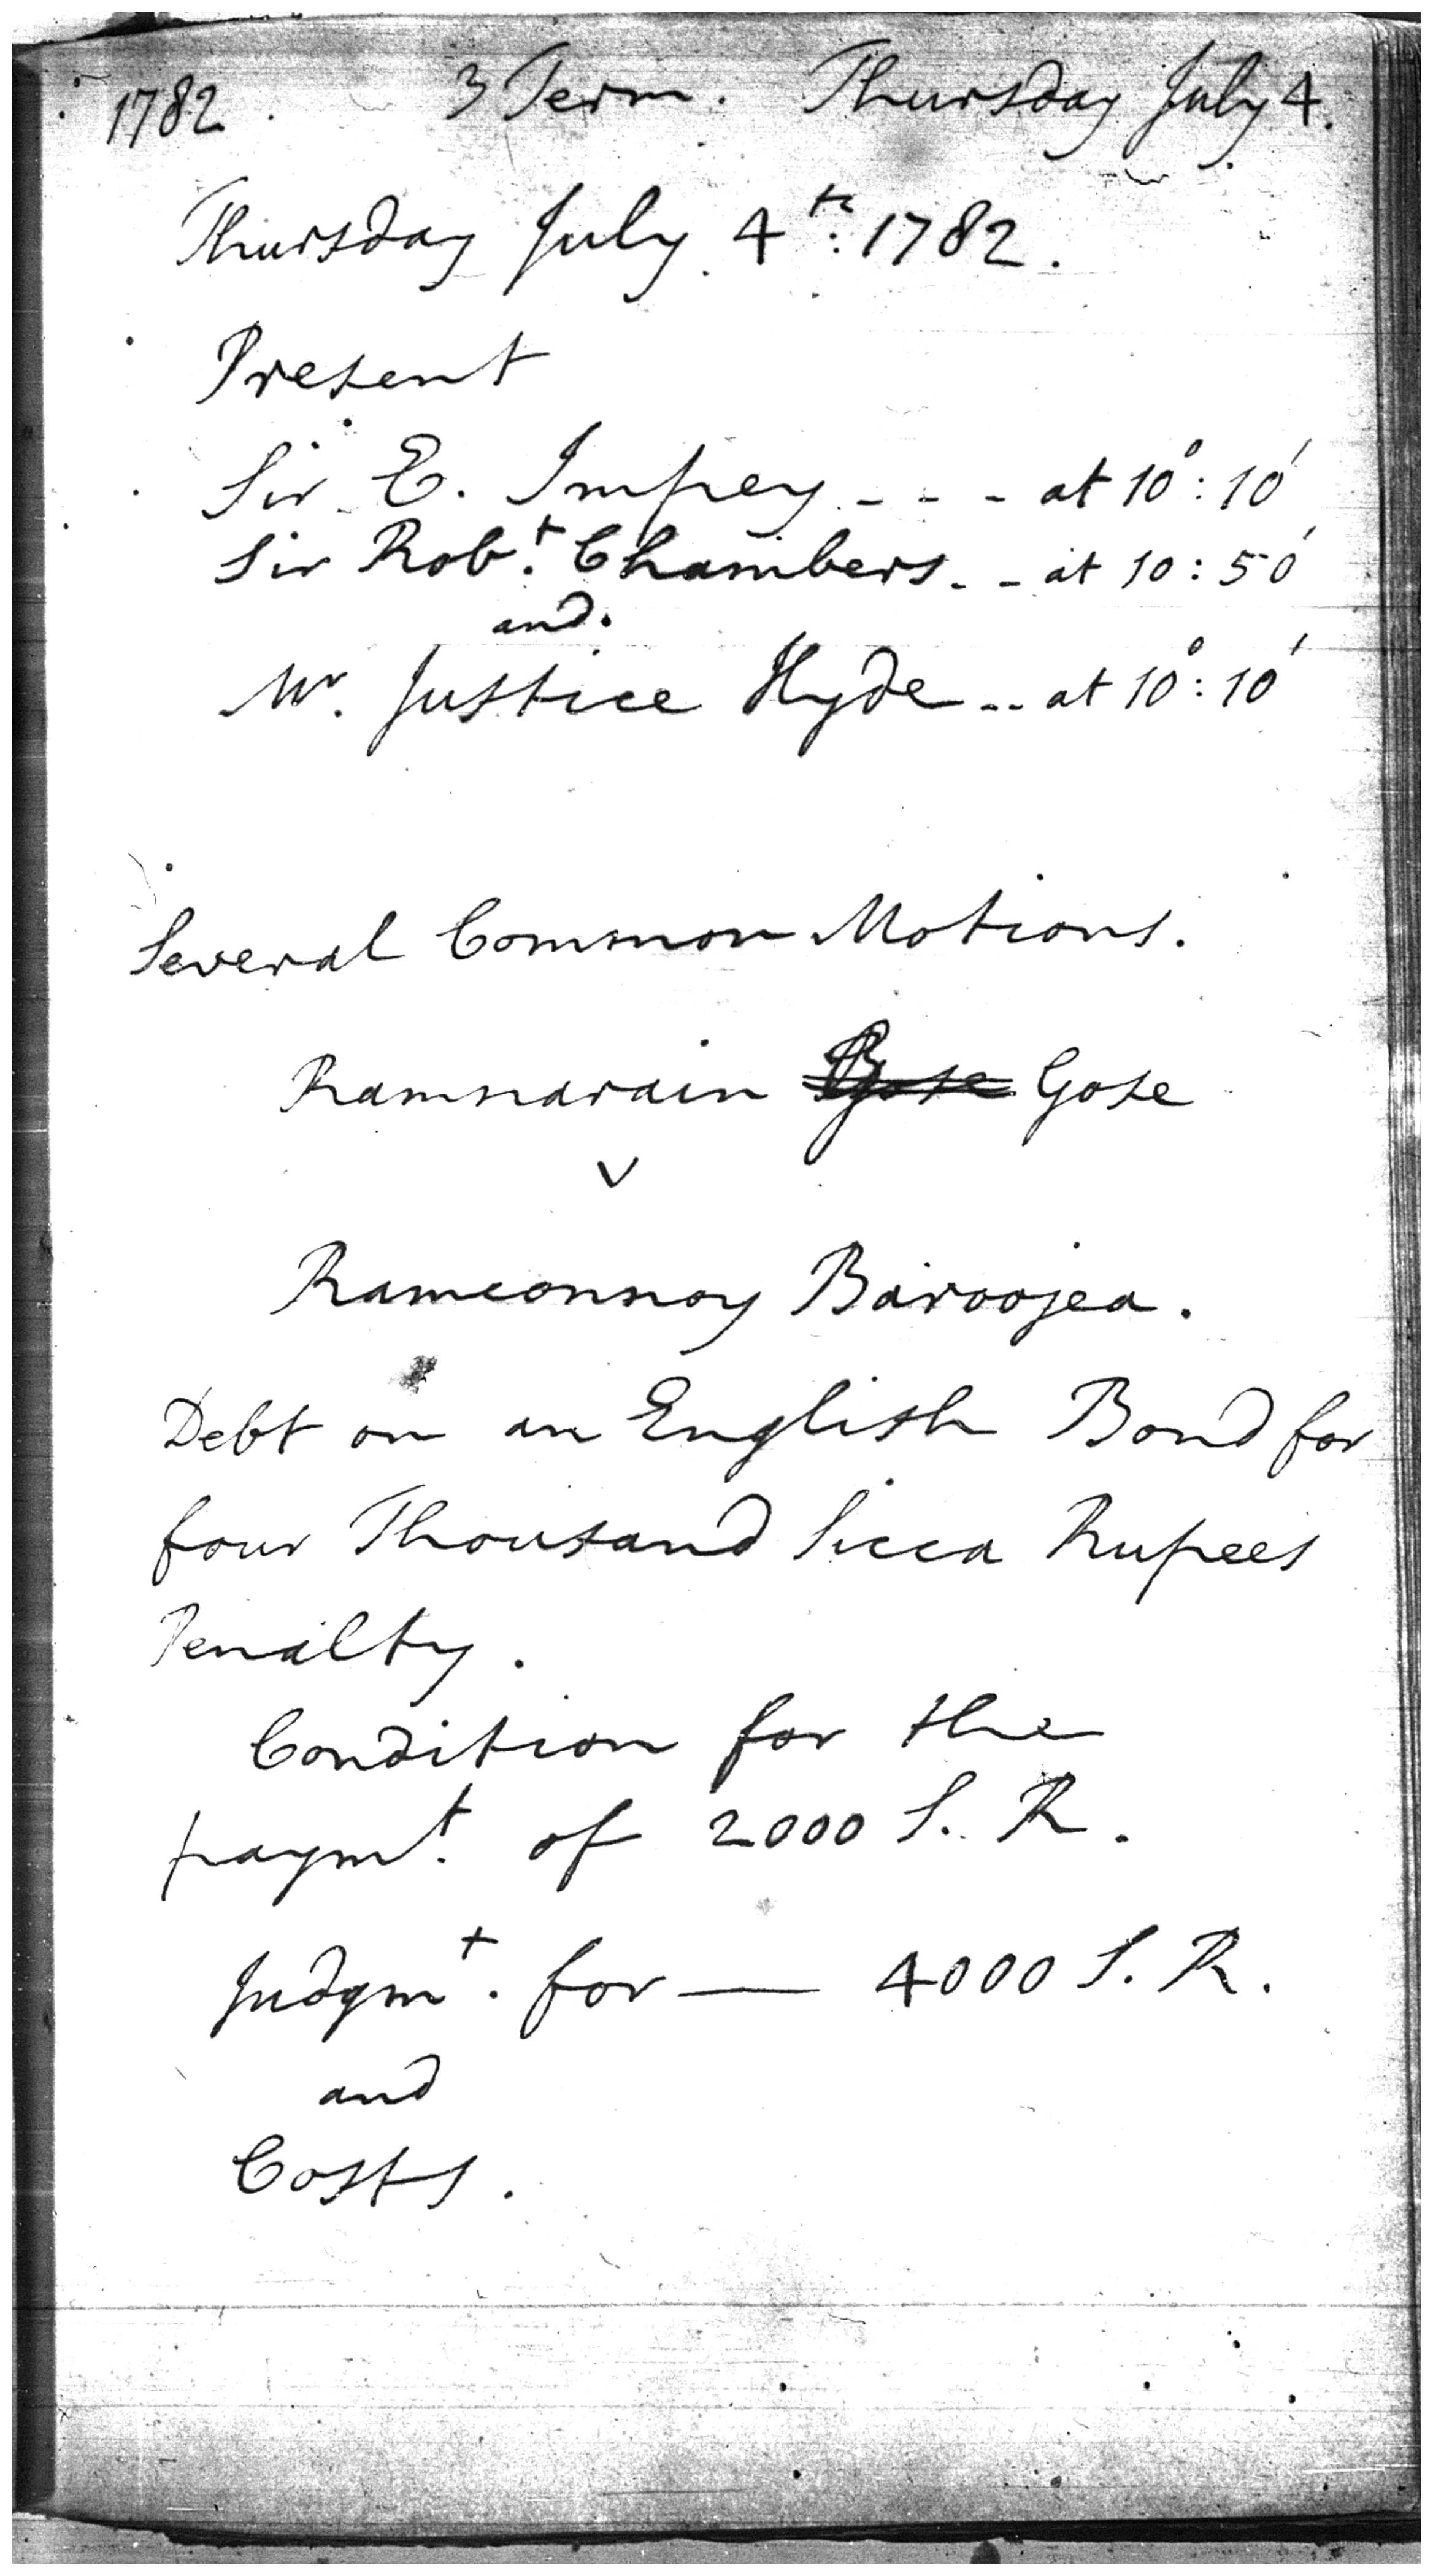 1782. 3 Term. Thursday July 4.
Thursday July 4th: 1782.
Present
Sir E. Impey - - - at 10°: 10'
Sir Robt. Chambers - - at 10: 50'
and.
Mr. Justice Hyde -- at 10°: 10'
Several Common Motions.
Ramnarain Gose
v
Ramconnoy Baroojea.
Debt on an English Bond for
four Thousand Sicca Rupees
Penalty.
Condition for the
paymt. of 2000 S. R.
Judgmt. for — 4000 S. R.
and
Costs.